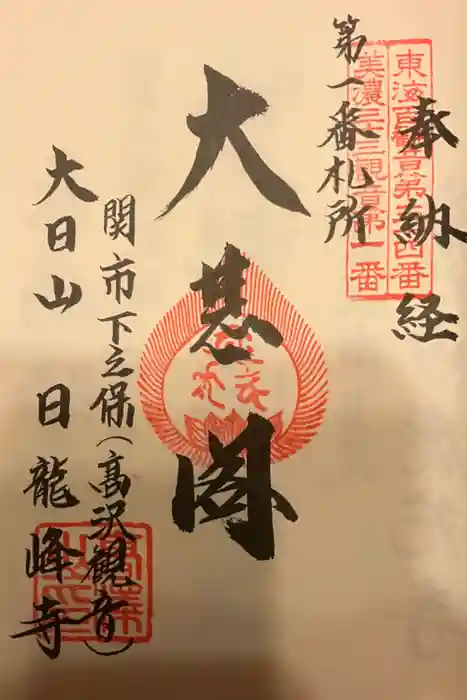 奉納経
東海百観音第五十四番
美濃三十三観音第一番
第一番札所
大慈閣
関市下之保(高沢観音)
大日山 日龍峰寺